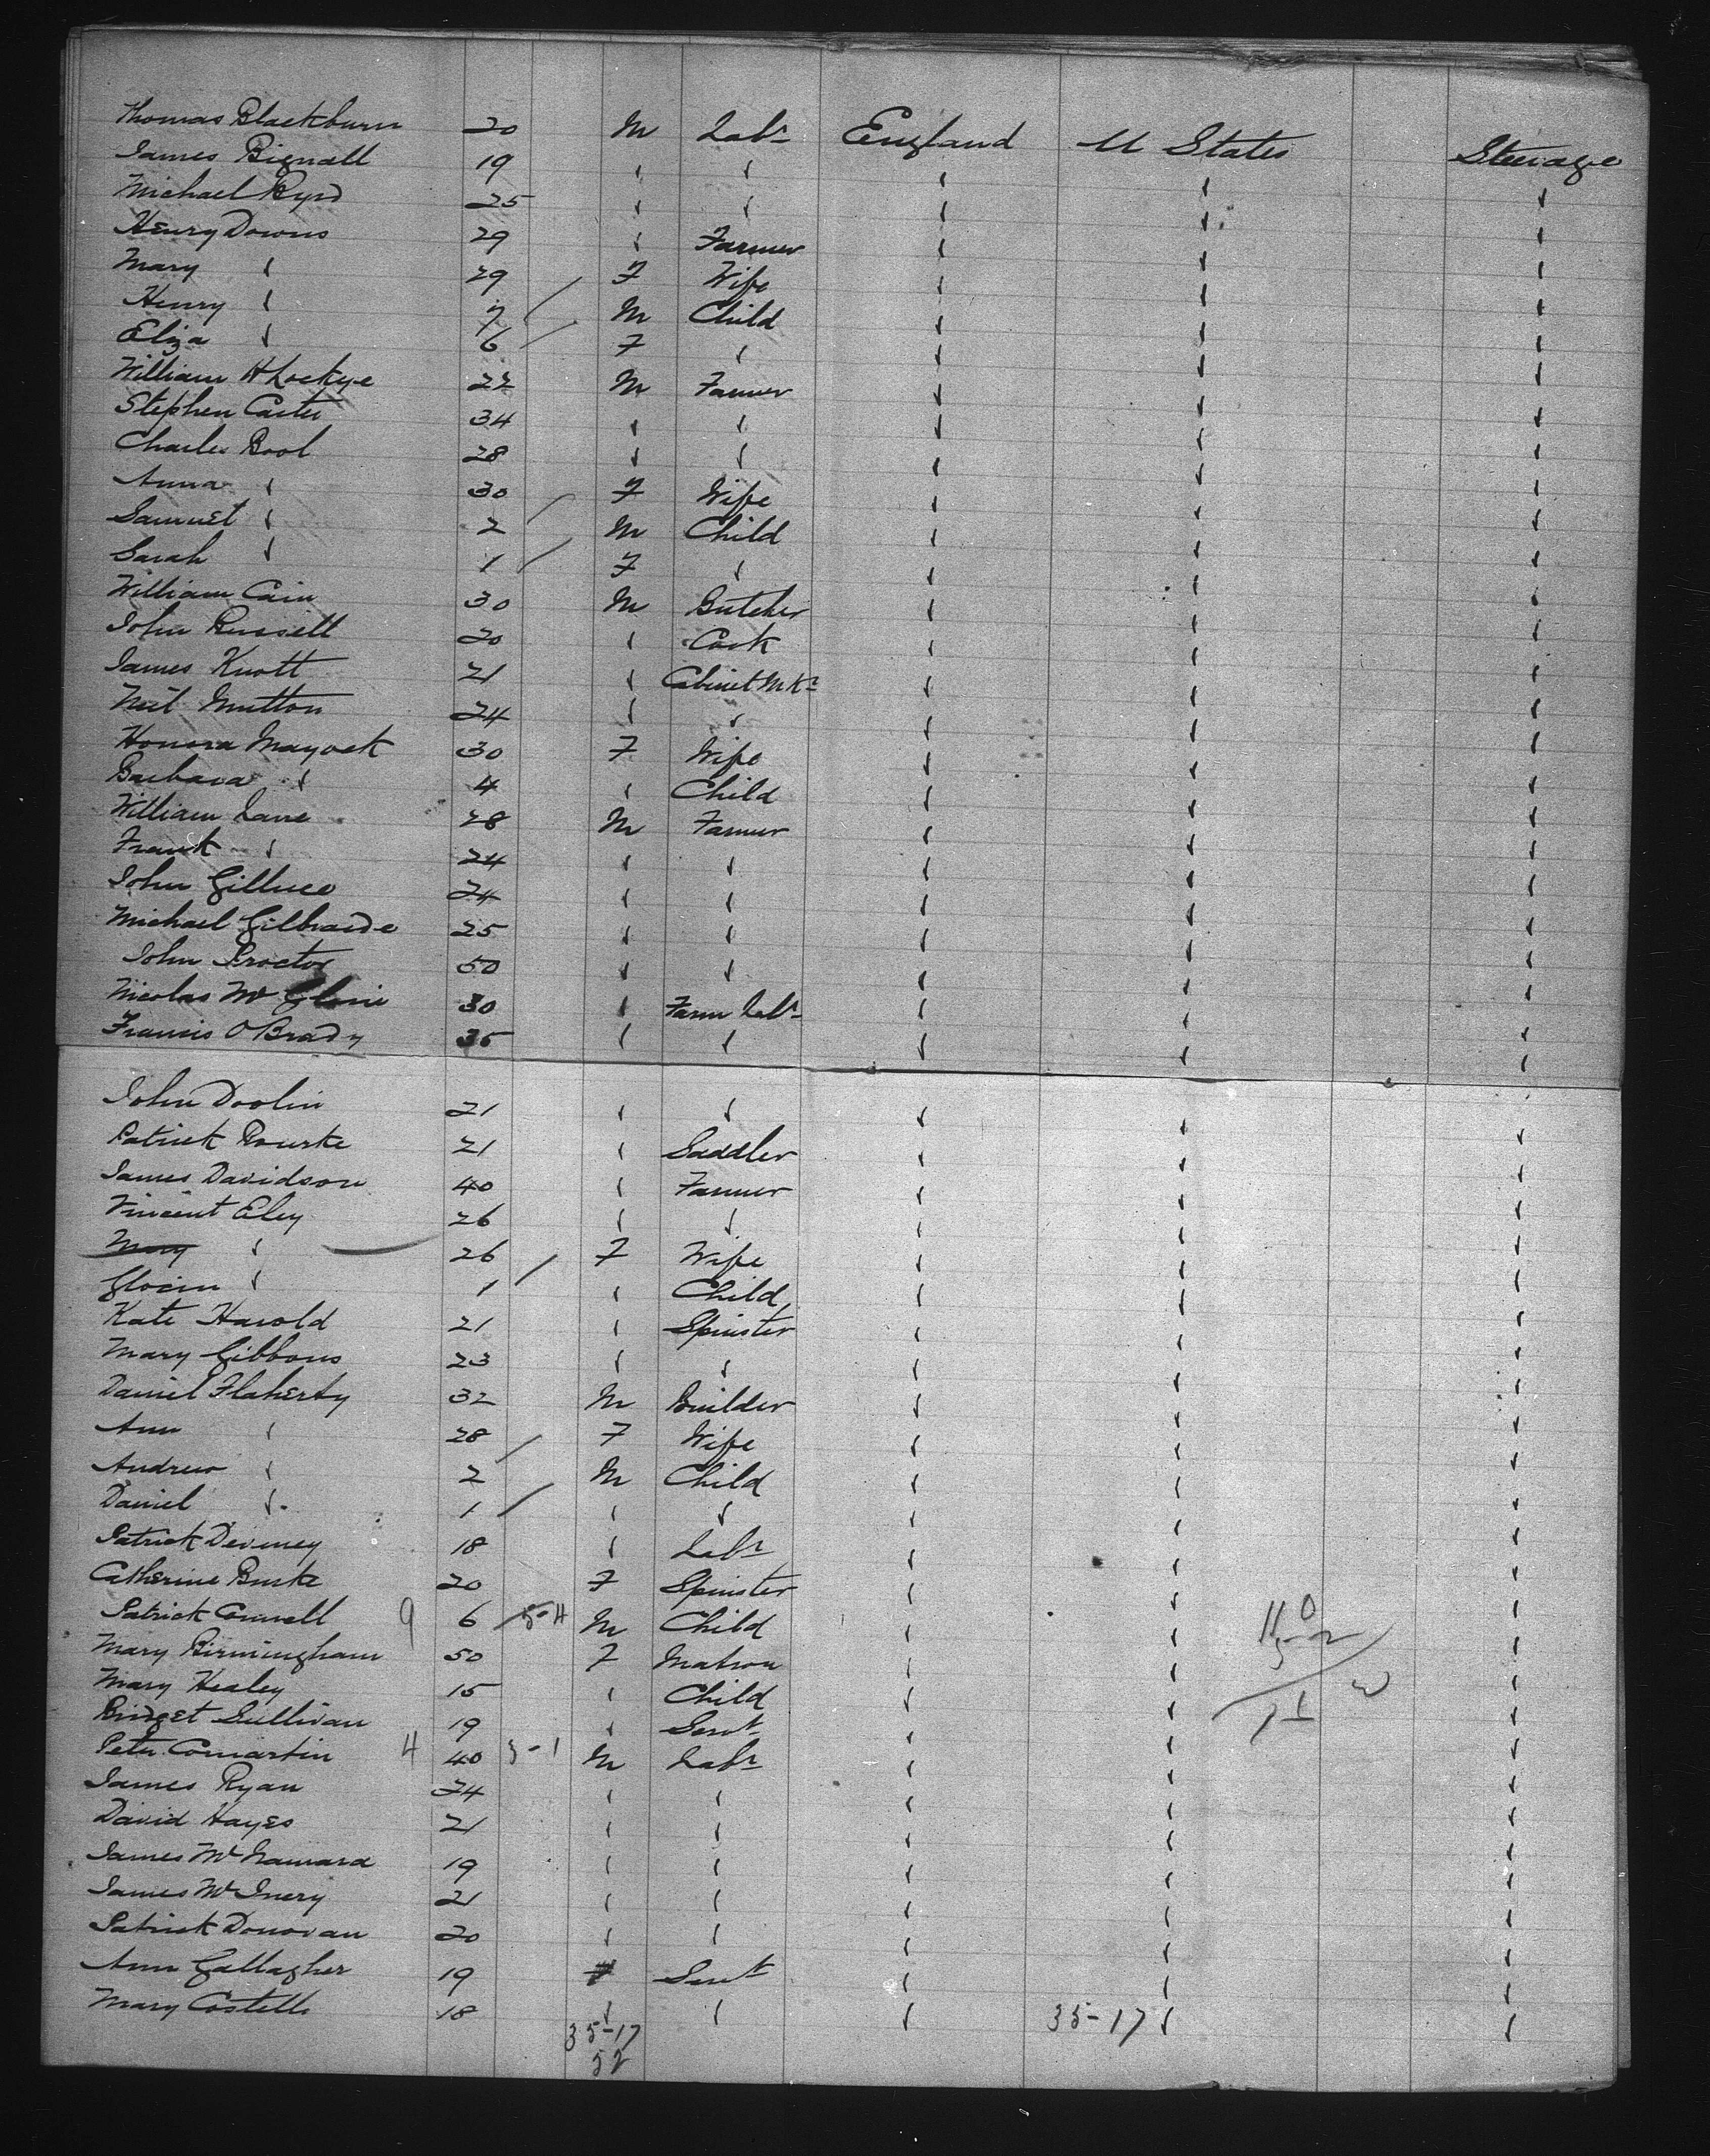 Thomas Blackburn 20 M Labr England U States Steerage
James Bignall 19 " " " " "
Michael Byrd 25 " " " " "
Henry Downs 29 " Farmer " " "
Mary " 29 F Wife " " "
Henry " 7 M Child " " "
Eliza " 6 F " " " "
William H Lockye 22 M Farmer " " "
Stephen Carter 34 " " " " "
Charles Bool 28 " " " " "
Anna " 30 F Wife " " "
Samuel " 2 M Child " " "
Sarah " 1 F " " " "
William Cain 30 M Butcher " " "
John Russell 20 " Cook " " "
James Knott 21 " Cabinet Mkr " " "
Neil Mutton 24 " " " " "
Honora Mayock 30 F Wife " " "
Barbara " 4 " Child " " "
William Lane 28 M Farmer " " "
Frank " 24 " " " " "
John 24 " " " " "
Michael Gilbraide 25 " " " " "
John Proctor 50 " " " " "
Nicolas Mc 30 " Farm Labr " " "
Francis O Brady 35 " " " " "
John Doolin 21 " " " " "
Patrick Rourke 21 " Saddler " " "
James Davidson 40 " Farmer " " "
Vincent Eley 26 " " " " "
Mary " 26 F Wife " " "
" 1 " Child " " "
Kate Harold 21 " Spinster " " "
Mary Gibbons 23 " " " " "
Daniel Flaherty 32 M Builder " " "
Ann " 28 F Wife " " "
Andrew " 2 M Child " " "
Daniel " 1 " " " " "
Patrick Deviney 18 " Labr " " "
Catherine Burke 20 F Spinster " " "
Patrick Connell 9 6 5-4 M Child " " "
Mary Birmingham 50 F Matron " " "
Mary Healey 15 " Child " " "
Bridget Sullivan 19 " Servt " " "
Peter Comartin 4 40 3-1 M Labr " " "
James Ryan 24 " " " " "
David Hayes 21 " " " " "
James McNamara 19 " " " " "
James McInery 21 " " " " "
Patrick Donovan 20 " " " " "
Ann Gallagher 19 F Servt " " "
Mary Costello 18 " " " 35-17 " "
35-17
52